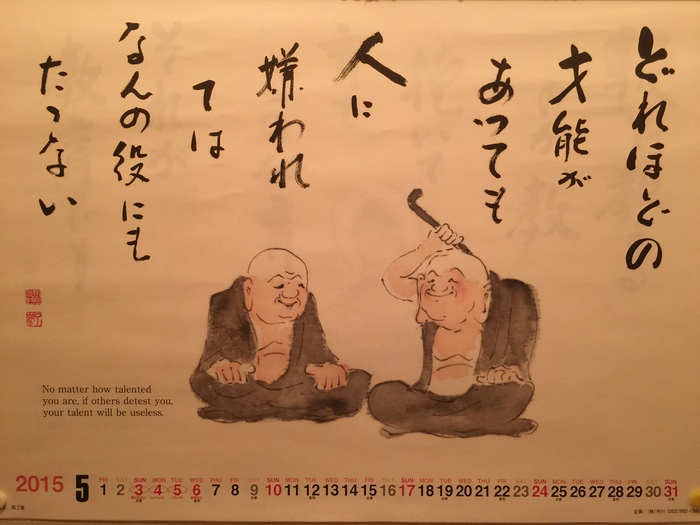 どれほどの
才能が
あっても
人に
嫌われ
ては
なんの役にも
たつない
No matter how talented
you are, if others detest you,
your talent will be useless.
2015 5
FRI SAT SUN MON TUE WED THU FRI SAT SUN MON TUE WED THU FRI SAT SUN MON TUE WED THU FRI SAT SUN MON TUE WED THU FRI SAT SUN
1 2 3 4 5 6 7 8 9 10 11 12 13 14 15 16 17 18 19 20 21 22 23 24 25 26 27 28 29 30 31